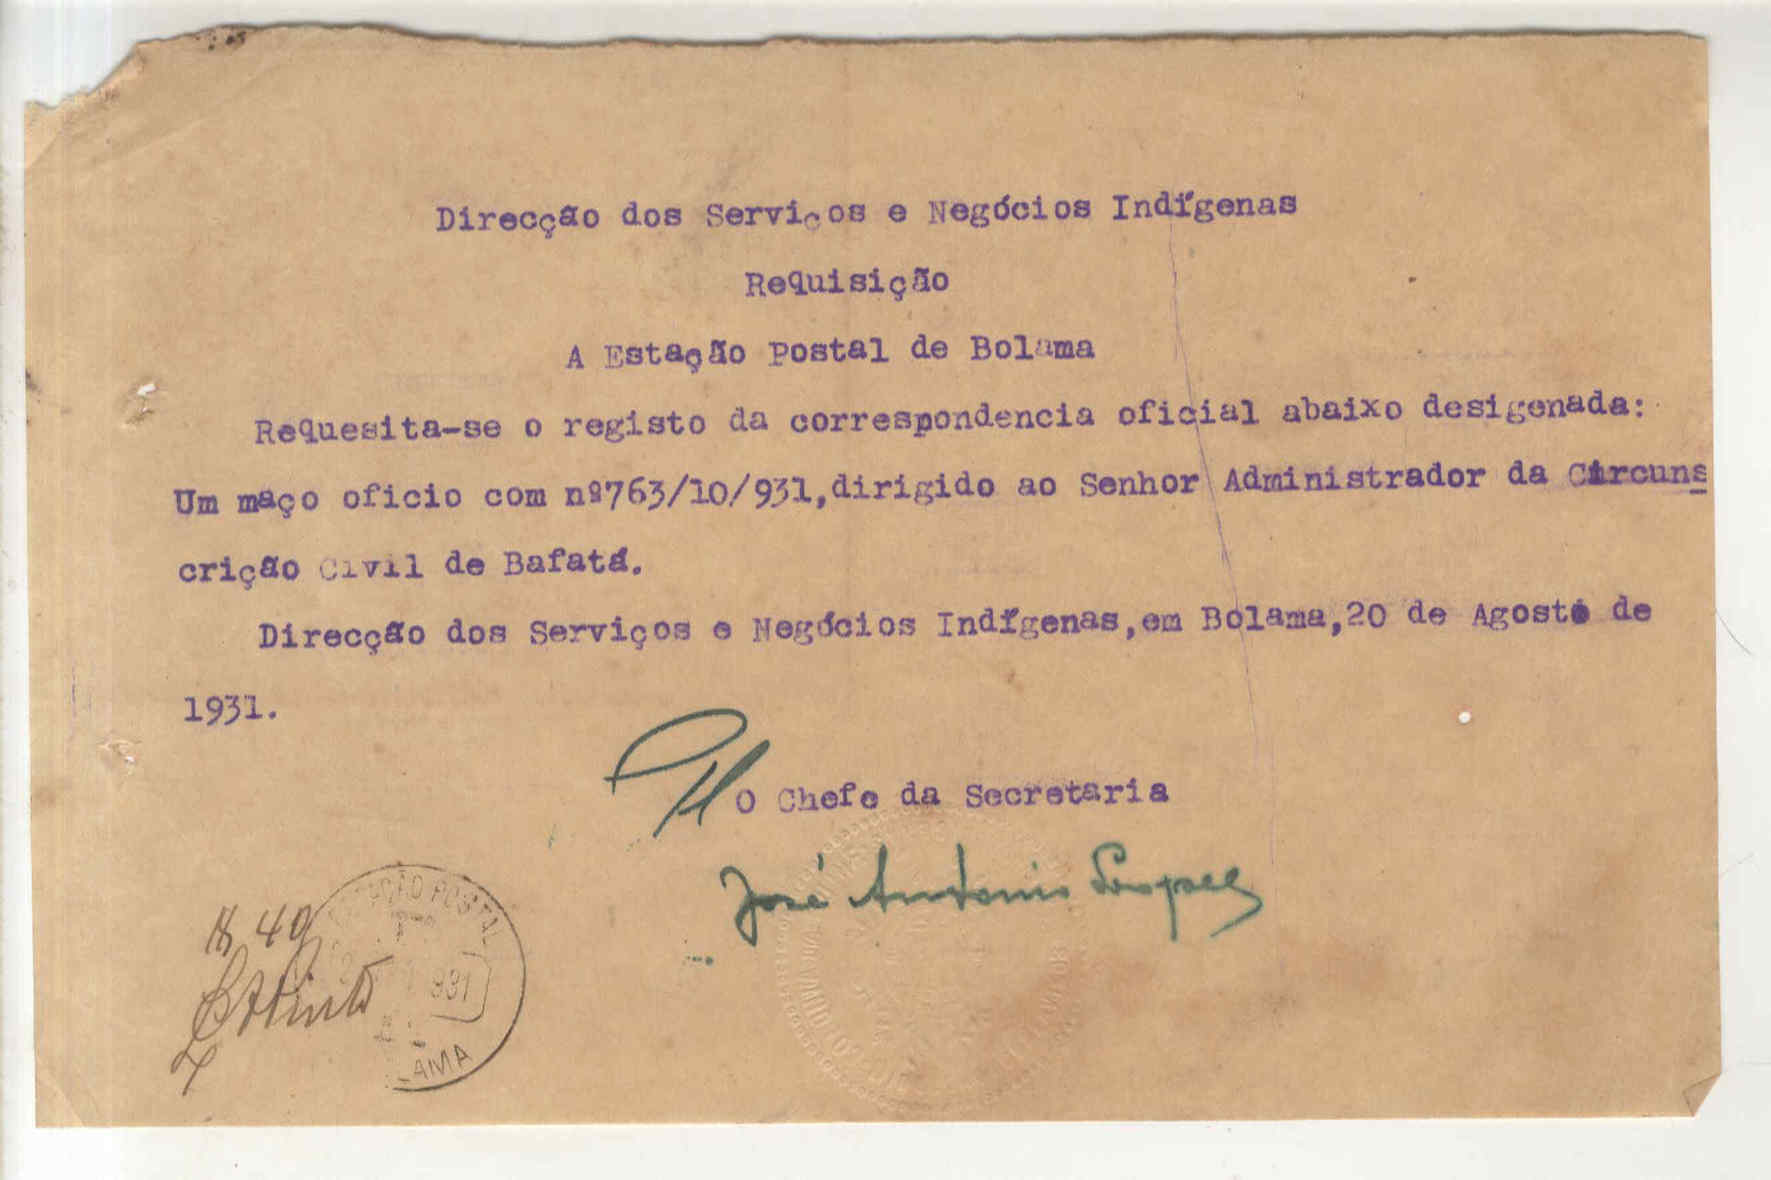 Direcção dos Serviços e Negócios Indígenas
Requisição
A Estação Postal de Bolama
Requesita-se o registo da correspondencia oficial abaixo desigenada:
Um maço oficio com nº763/10/931,dirigido ao Senhor Administrador da Circuns
crição Civil de Bafatá.
Direcção dos Serviços e Negócios Indígenas,em Bolama,20 de Agosto de
1931.
O Chefe da Secretaria
José Antonio Lopes
40
POSTAL
931
LAMA